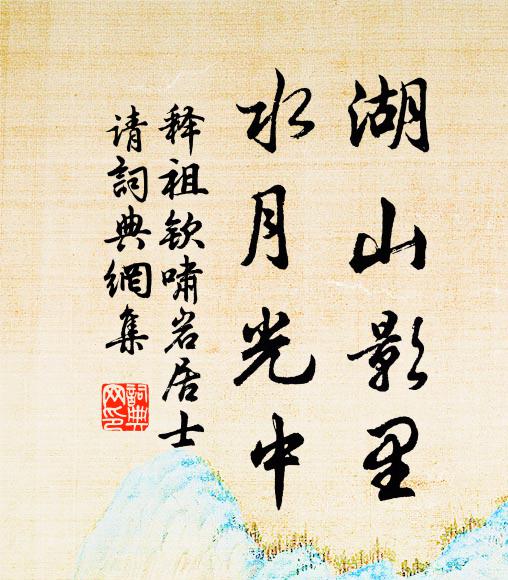 湖山影里
水月光中
释祖钦啸岩居士
请词典网集
词典网印